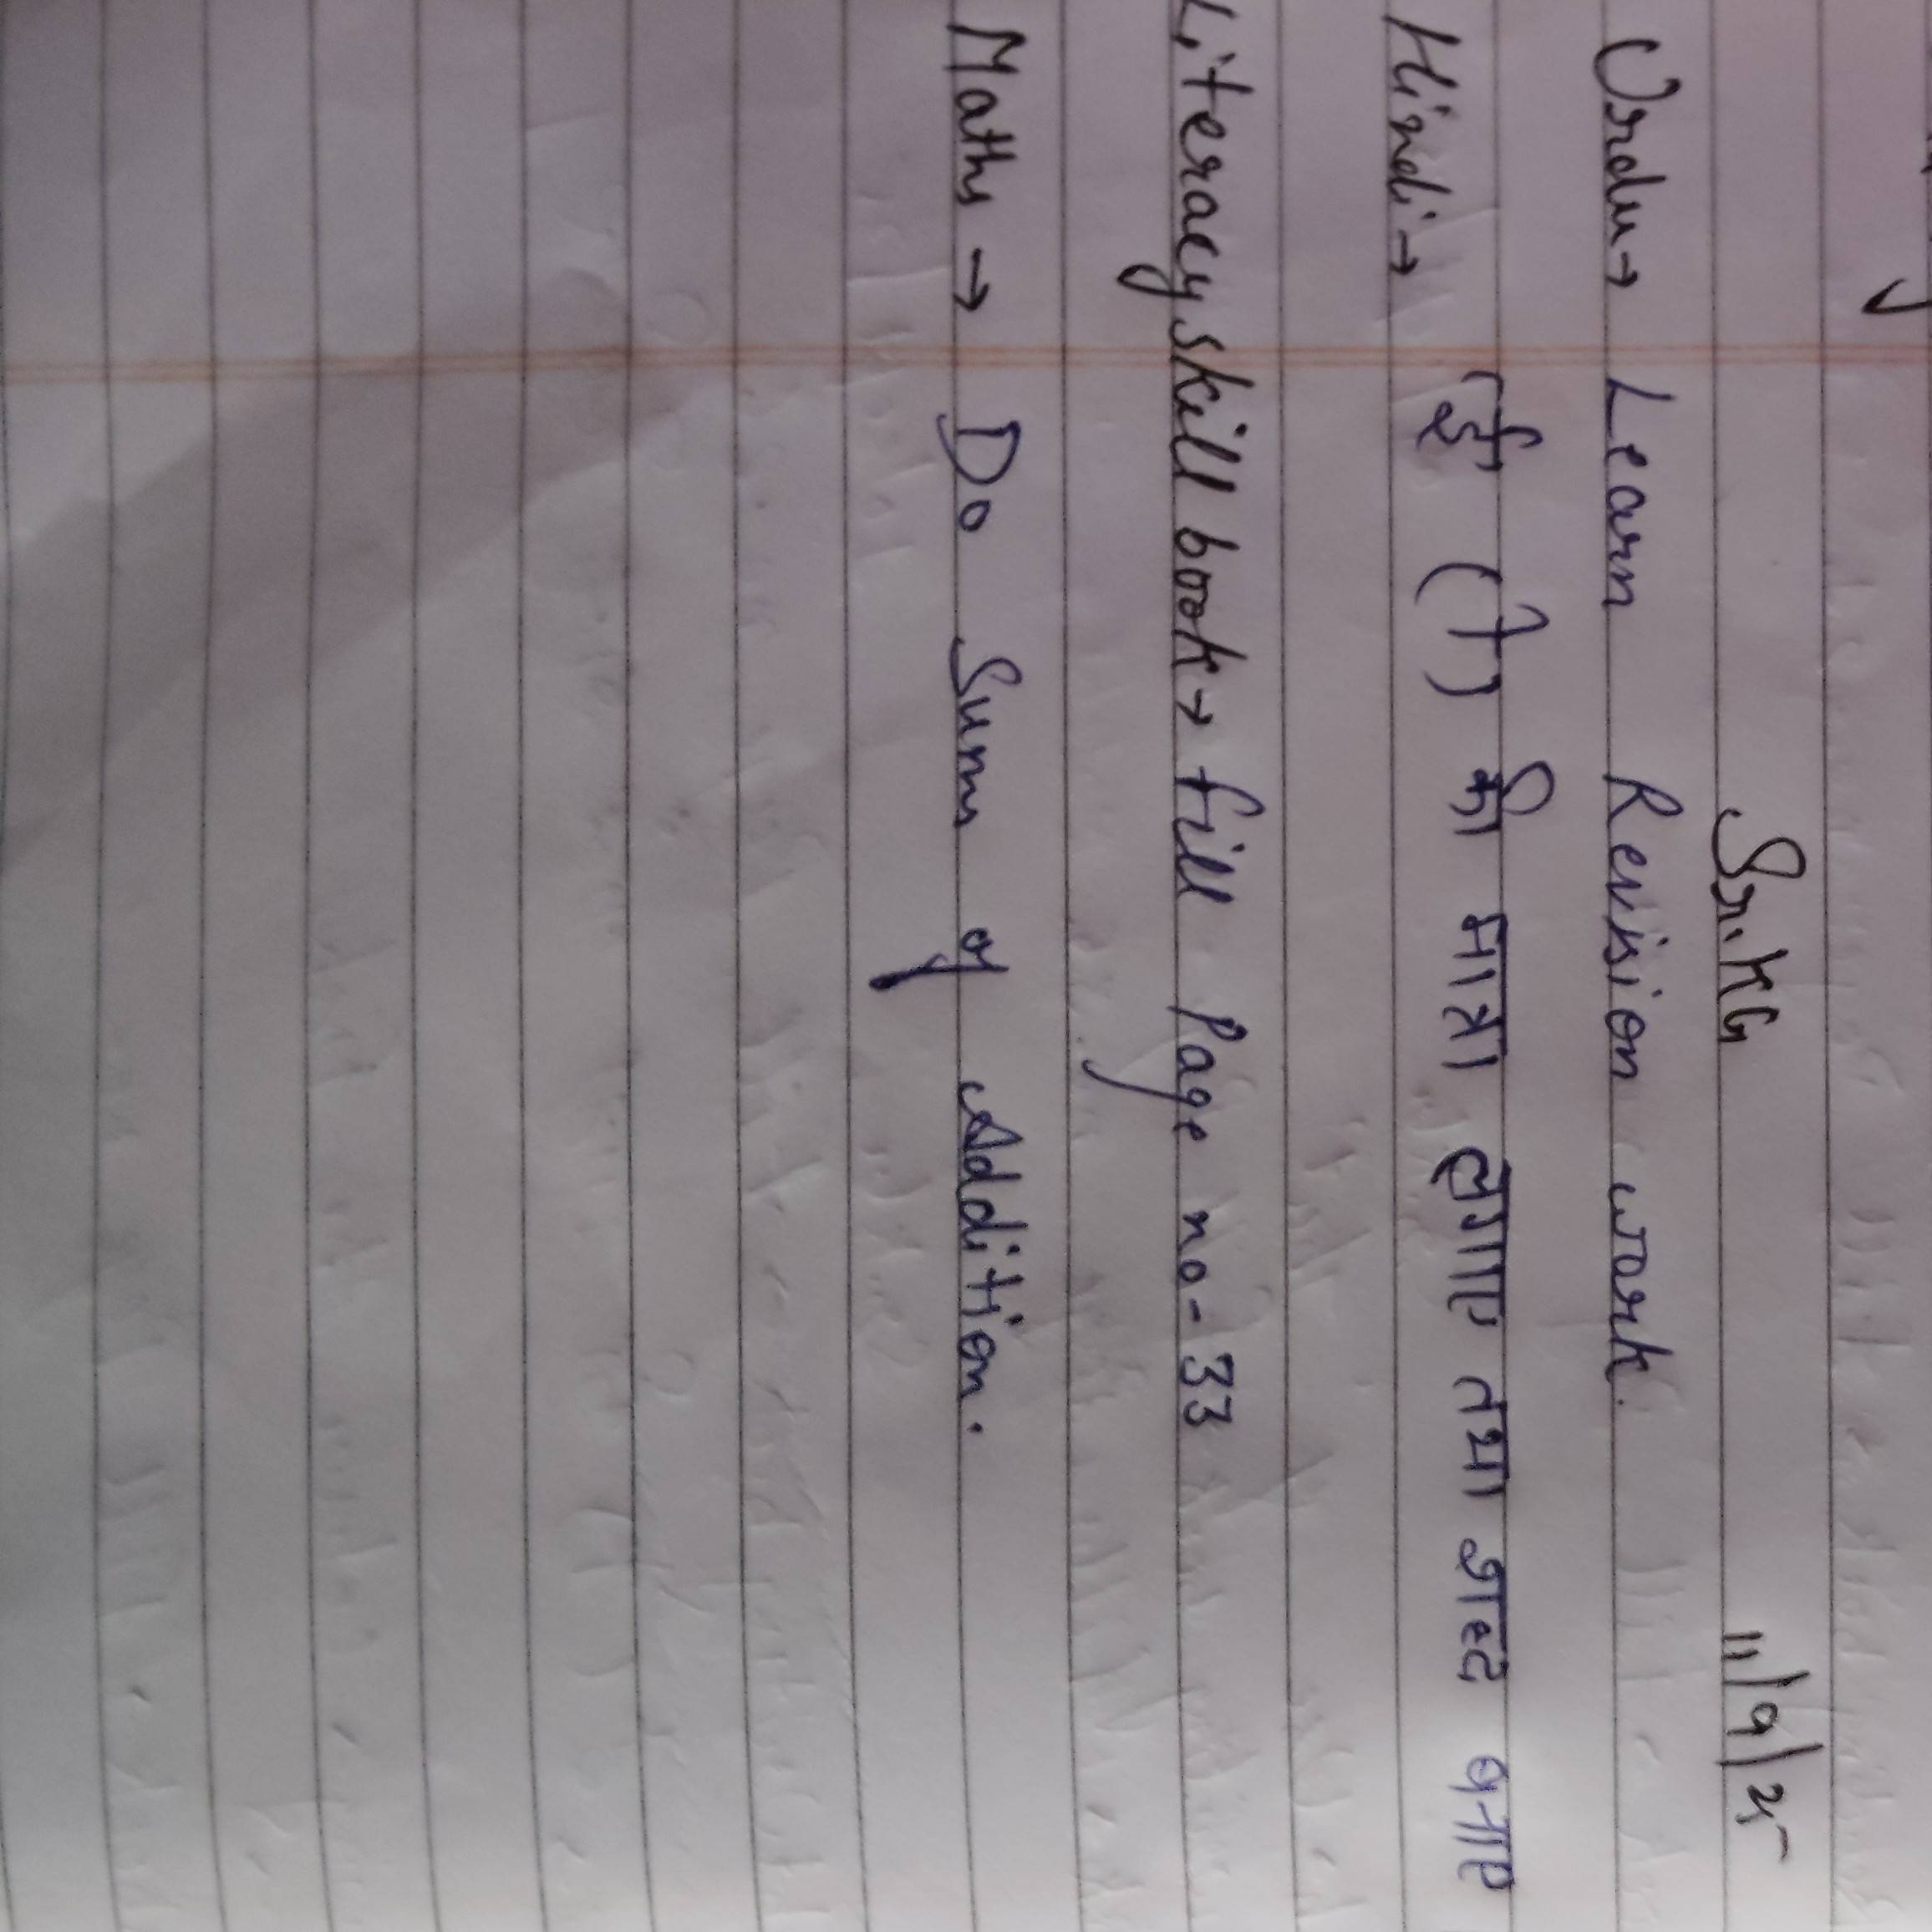 Sr.KG 11/9/25
Urdu → Learn Revision work.
Hindi → ई (ी) की मात्रा लगाए तथा शब्द बनाए
Literacy skill book → fill Page no-33
Maths → Do Sums of Addition.